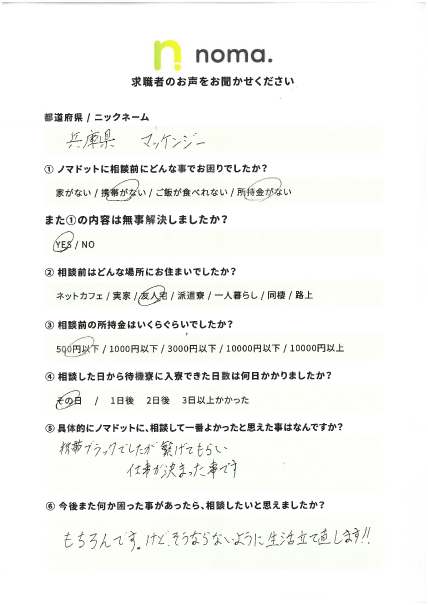 noma.
求職者のお声をお聞かせください
都道府県 / ニックネーム
兵庫県 マッケンジー
① ノマドットに相談前にどんな事でお困りでしたか?
家がない / 携帯がない / ご飯が食べれない / 所持金がない
また①の内容は無事解決しましたか?
YES / NO
② 相談前はどんな場所にお住まいでしたか?
ネットカフェ / 実家 / 友人宅 / 派遣寮 / 一人暮らし / 同棲 / 路上
③ 相談前の所持金はいくらぐらいでしたか?
500円以下 / 1000円以下 / 3000円以下 / 10000円以下 / 10000円以上
④ 相談した日から待機寮に入寮できた日数は何日かかりましたか?
その日 / 1日後 2日後 3日以上かかった
⑤ 具体的にノマドットに、相談して一番よかったと思えた事はなんですか?
携帯ブラックでしたが繋げてもらい
仕事が決まった事です
⑥ 今後また何か困った事があったら、相談したいと思えましたか?
もちろんです。けど、そうならないように生活立て直します!!